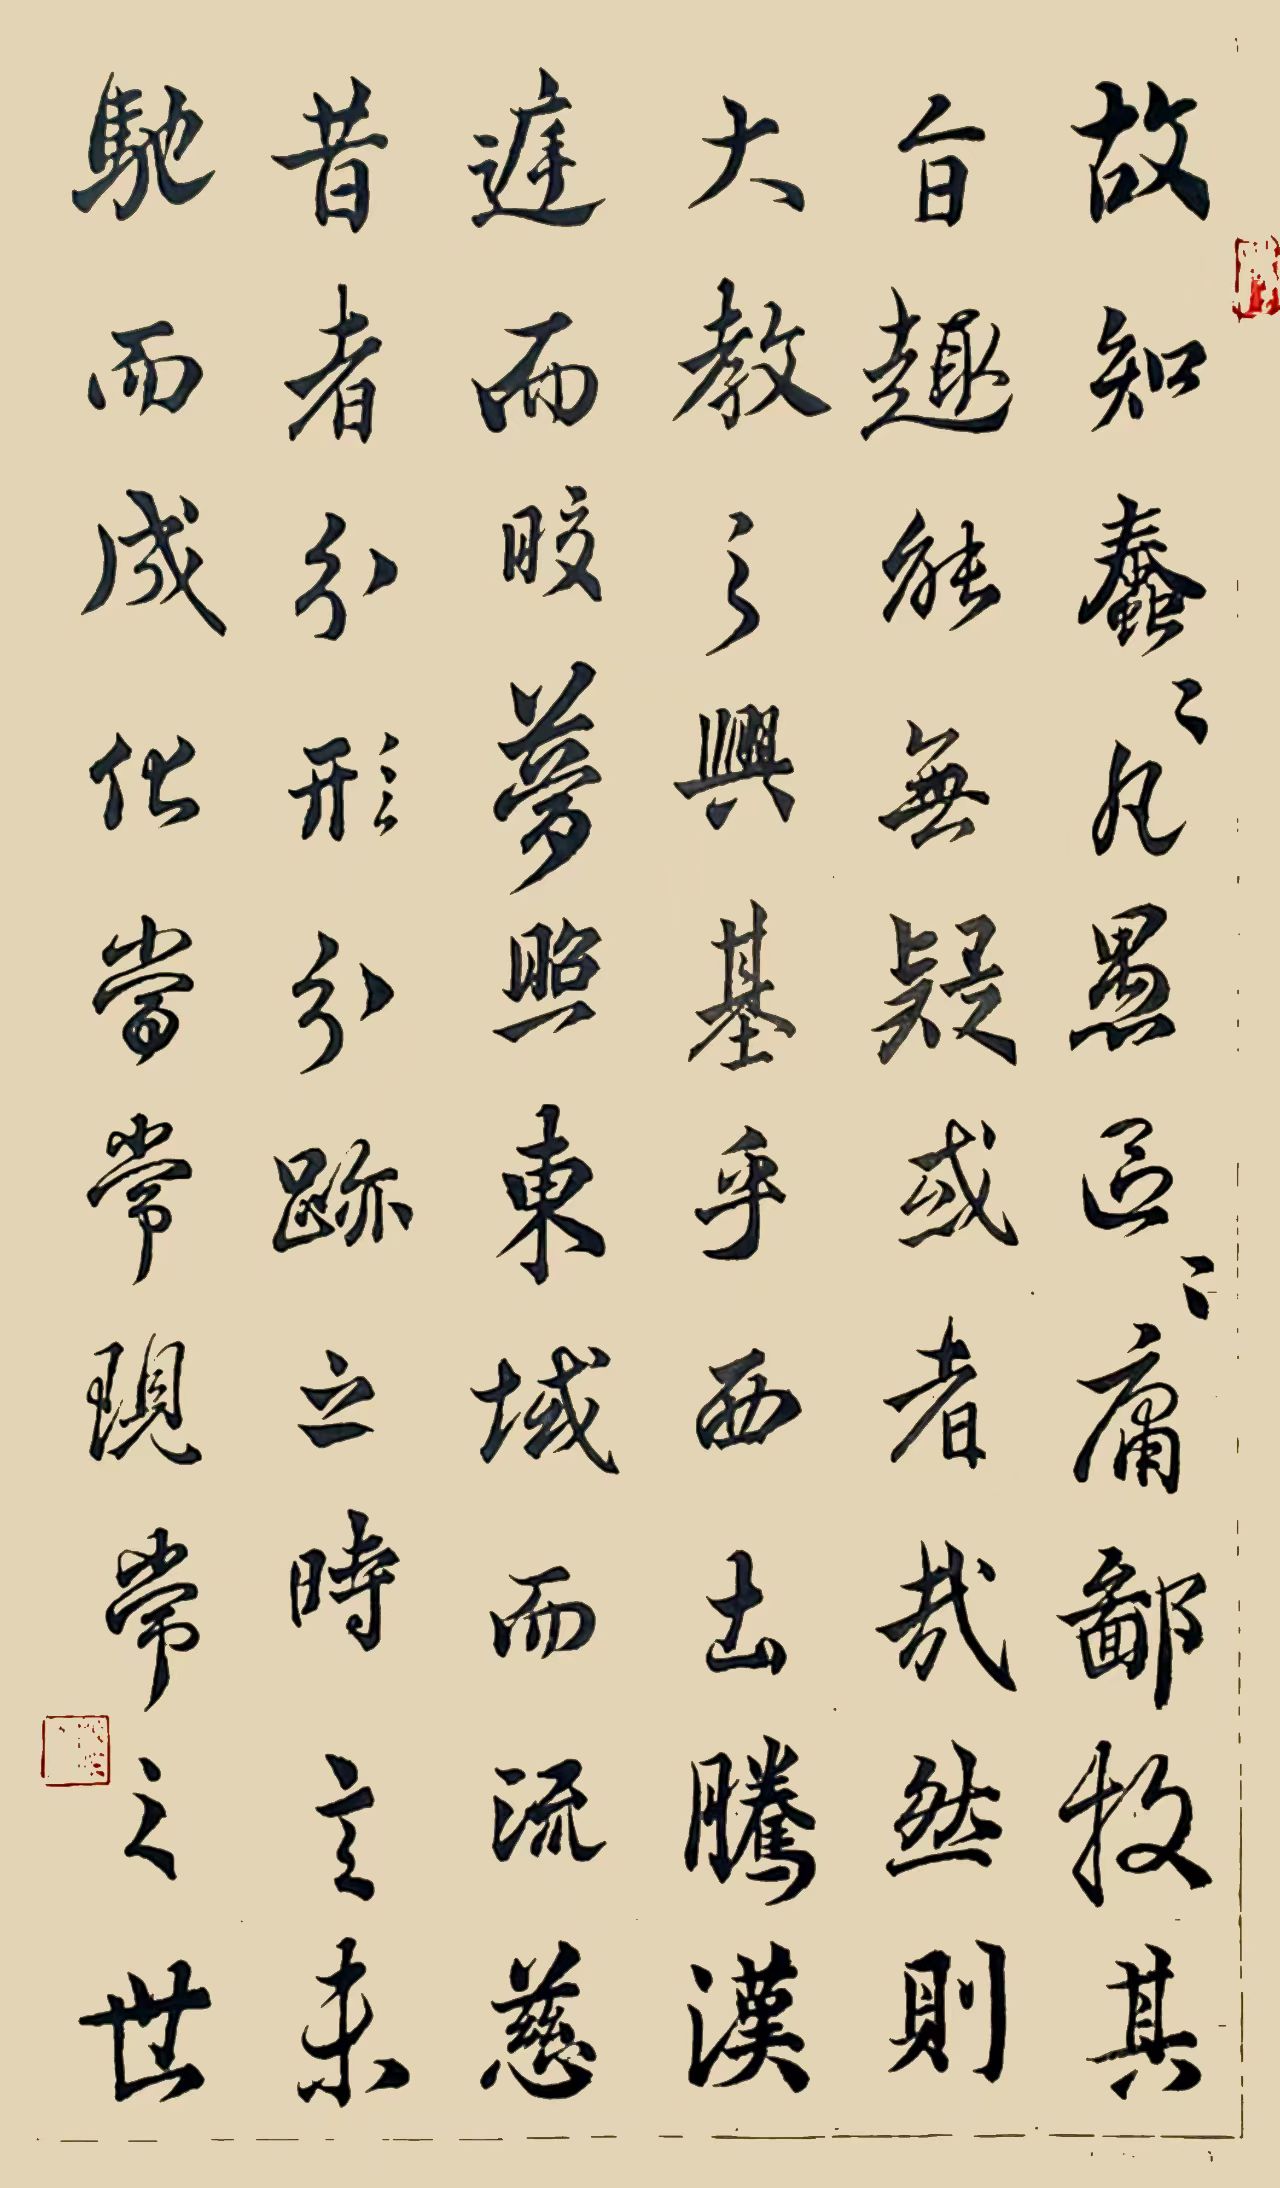 故知蠢〻凡愚區〻庸鄙投其
旨趣能無疑或者哉然則
大教之興基乎西出騰漢
庭而晈夢照東域而流慈
昔者分形分跡之時言未
馳而成化當常現常之世